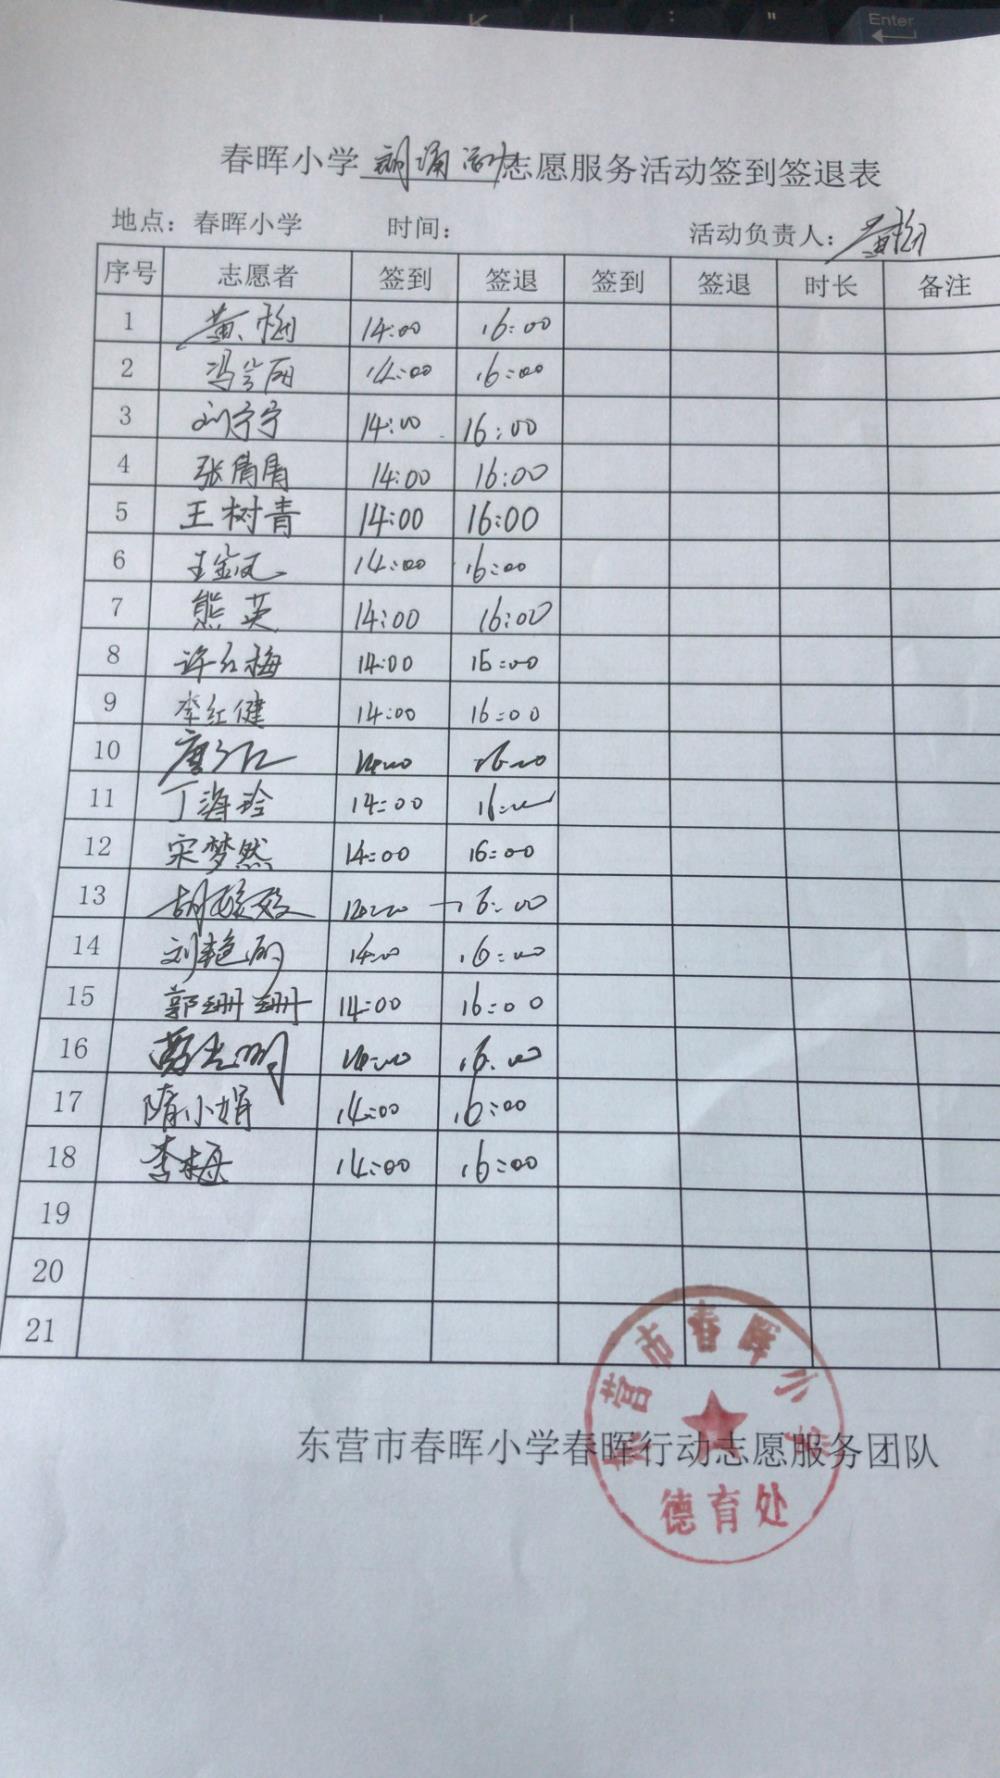 Enter
春晖小学朗诵活动志愿服务活动签到签退表
地点：春晖小学 时间： 活动负责人：黄梅
序号 志愿者 签到 签退 签到 签退 时长 备注
1 黄梅 14:00 16:00
2 冯 丽 14:00 16:00
3 刘宁宁 14:00 16:00
4 张倩倩 14:00 16:00
5 王树青 14:00 16:00
6 王 14:00 16:00
7 熊英 14:00 16:00
8 许红梅 14:00 16:00
9 李红健 14:00 16:00
10 14:00 16:00
11 丁海玲 14:00 16:00
12 宋梦然 14:00 16:00
13 胡 14:00 16:00
14 刘艳丽 14:00 16:00
15 郭珊珊 14:00 16:00
16 14:00 16:00
17 隋小娟 14:00 16:00
18 李梅 14:00 16:00
19
20
21
东营市春晖小学
东营市春晖小学春晖行动志愿服务团队
德育处